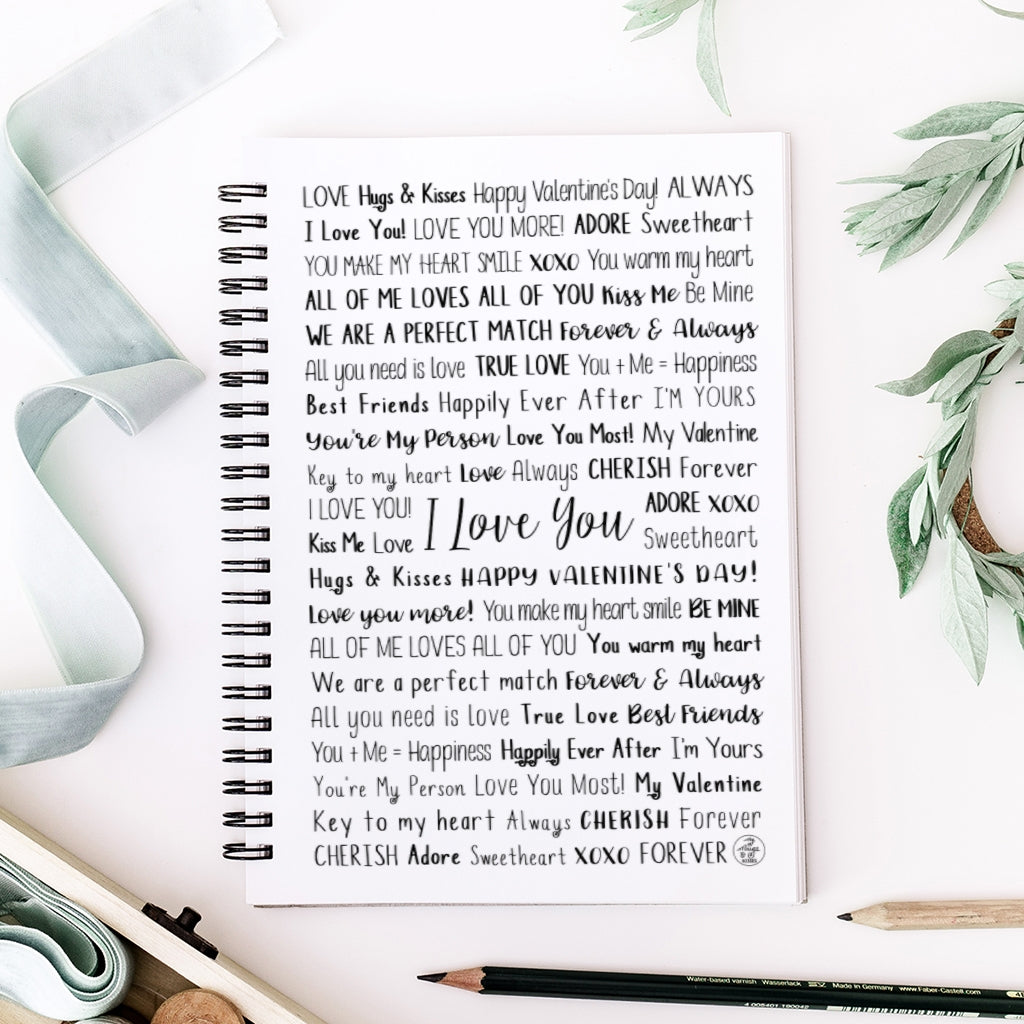 LOVE Hugs & Kisses Happy Valentine's Day! ALWAYS
I Love You! LOVE YOU MORE! ADORE Sweetheart
YOU MAKE MY HEART SMILE XOXO You warm my heart
ALL OF ME LOVES ALL OF YOU Kiss Me Be Mine
WE ARE A PERFECT MATCH Forever & Always
All you need is love TRUE LOVE You + Me = Happiness
Best Friends Happily Ever After I'M YOURS
You're My Person Love You Most! My Valentine
Key to my heart Love Always CHERISH Forever
I LOVE YOU! ADORE XOXO
I Love You
Kiss Me Love Sweetheart
Hugs & Kisses HAPPY VALENTINE'S DAY!
Love you more! You make my heart smile BE MINE
ALL OF ME LOVES ALL OF YOU You warm my heart
We are a perfect match Forever & Always
All you need is love True Love Best Friends
You + Me = Happiness Happily Ever After I'm Yours
You're My Person Love You Most! My Valentine
Key to my heart Always CHERISH Forever
CHERISH Adore Sweetheart XOXO FOREVER
Water-based varnish Wasserlack Made in Germany www.Faber-Castell.com
4 005401 190042